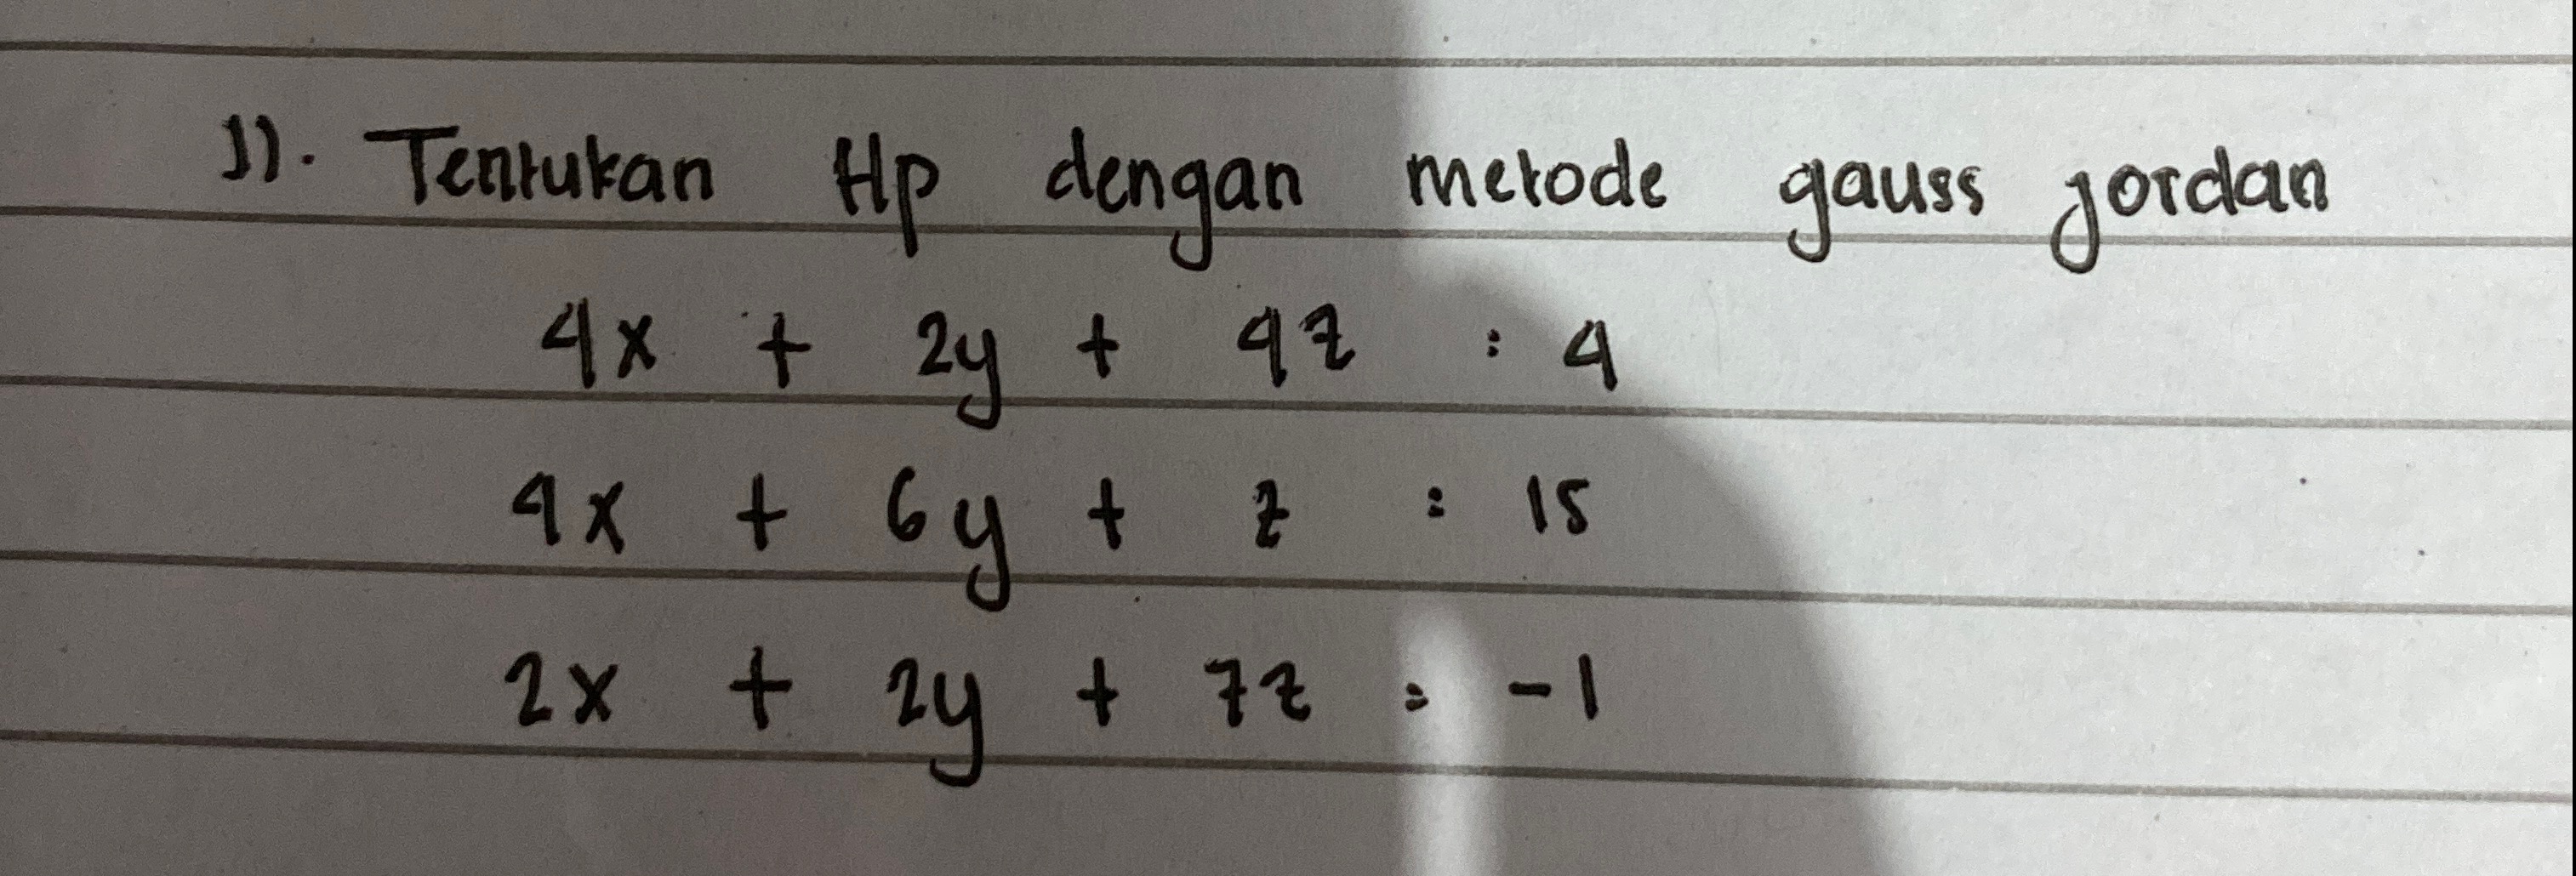 1). Tentukan Hp dengan metode gauss jordan
4x + 2y + 4z : 4
4x + 6y + z : 15
2x + 2y + 7z = -1